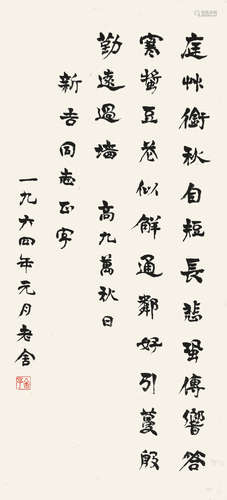 庭艸銜秋自短長悲蛩傳響答
寒螿豆花似解通鄰好引蔓殷
勤遠過墻　高九萬秋日
新吾同志正字
一九六四年元月老舍